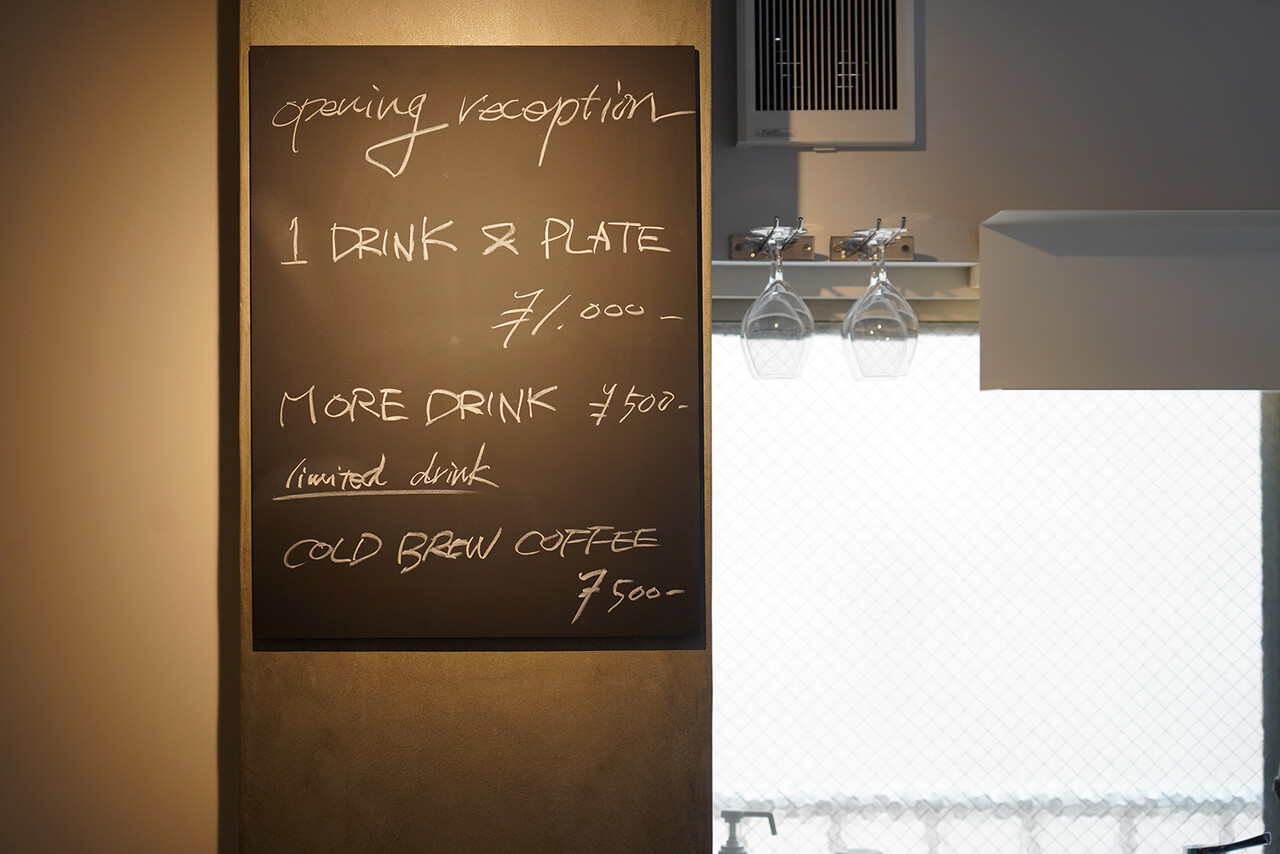 opening reception
1 DRINK & PLATE
¥1.000-
MORE DRINK ¥500-
limited drink
COLD BREW COFFEE
¥500-